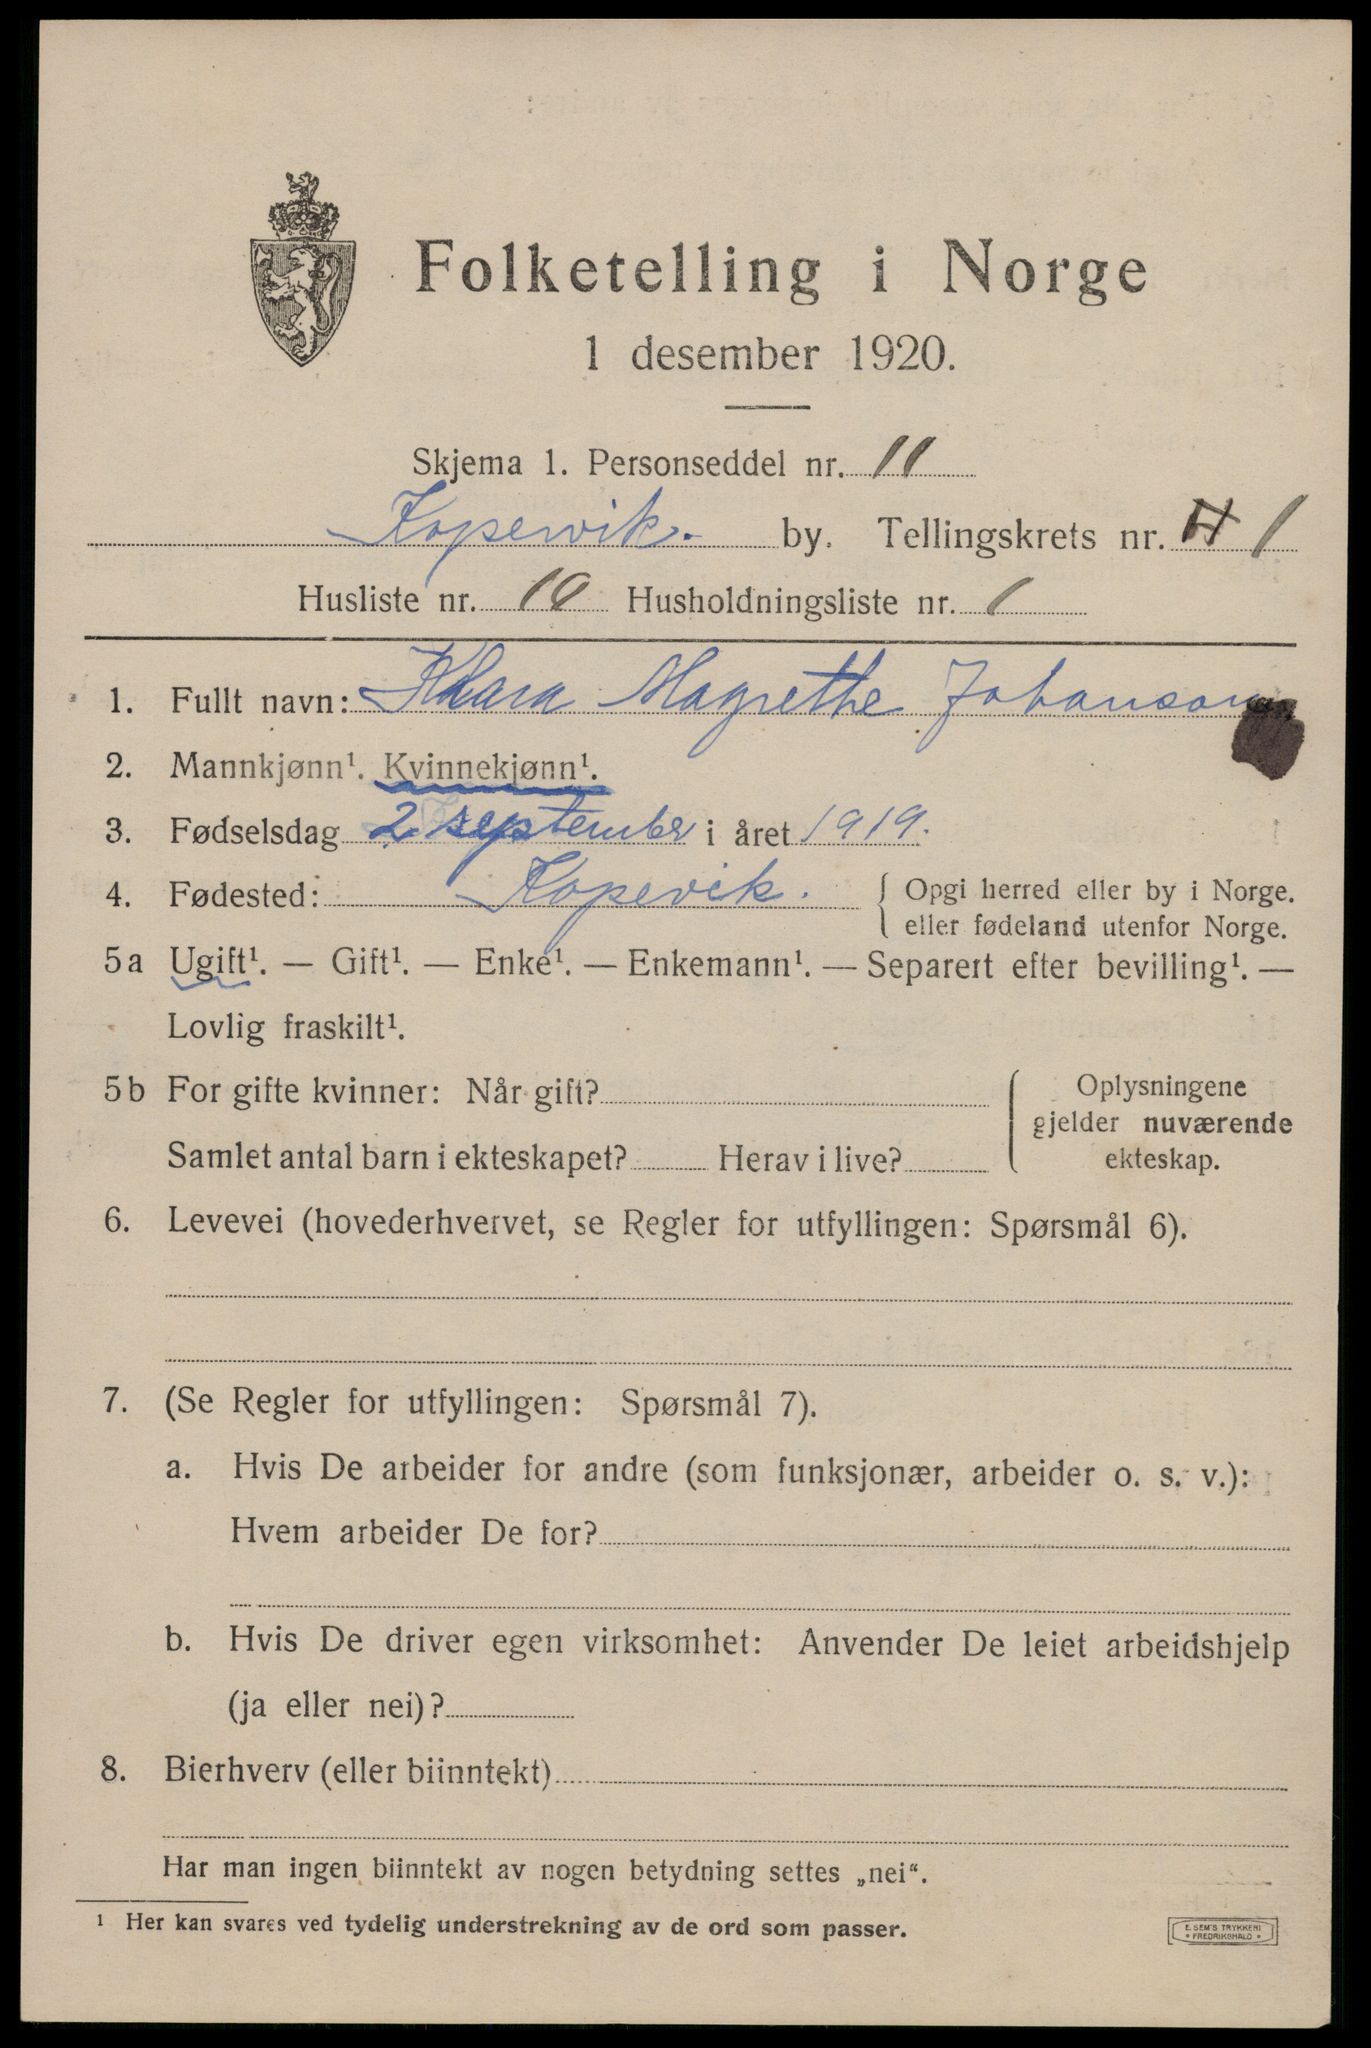 Folketelling i Norge
1 desember 1920.
Skjema 1. Personseddel nr. 11
Kopervik. by. Tellingskrets nr. 1
Husliste nr. 10 Husholdningsliste nr. 1
1. Fullt navn: Klara Magrethe Johanson
2. Mannkjønn¹. Kvinnekjønn¹.
3. Fødselsdag 2 september i året 1919.
4. Fødested: Kopevik. { Opgi herred eller by i Norge.
eller fødeland utenfor Norge.
5a Ugift¹. — Gift¹. — Enke¹. — Enkemann¹. — Separert efter bevilling¹. —
Lovlig fraskilt¹.
5b For gifte kvinner: Når gift?
Samlet antal barn i ekteskapet? Herav i live?
Oplysningene
gjelder nuværende
ekteskap.
6. Levevei (hovederhvervet, se Regler for utfyllingen: Spørsmål 6).
7. (Se Regler for utfyllingen: Spørsmål 7).
a. Hvis De arbeider for andre (som funksjonær, arbeider o. s. v.):
Hvem arbeider De for?
b. Hvis De driver egen virksomhet: Anvender De leiet arbeidshjelp
(ja eller nei)?
8. Bierhverv (eller biinntekt)
Har man ingen biinntekt av nogen betydning settes „nei“.
¹ Her kan svares ved tydelig understrekning av de ord som passer.
E. SEM'S TRYKKERI
• FREDRIKSHALD •